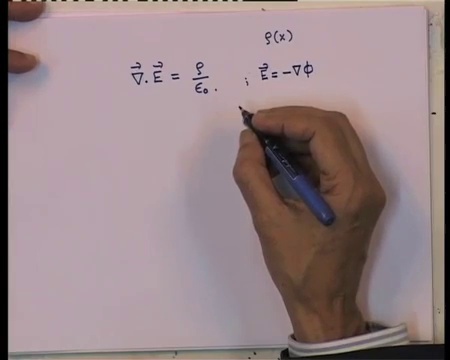 ρ(x)
∇⃗.E⃗ = ρ/ε₀. ; E⃗ = −∇φ